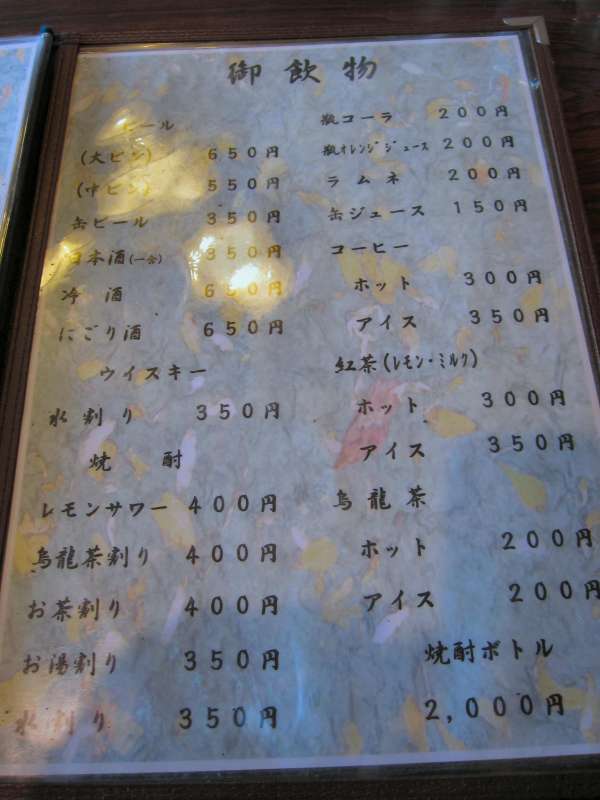 御飲物
ビール
(大ビン) 650円
(中ビン) 550円
缶ビール 350円
日本酒(一合) 350円
冷酒 650円
にごり酒 650円
ウイスキー
水割り 350円
焼酎
レモンサワー 400円
烏龍茶割り 400円
お茶割り 400円
お湯割り 350円
水割り 350円
瓶コーラ 200円
瓶オレンジジュース 200円
ラムネ 200円
缶ジュース 150円
コーヒー
ホット 300円
アイス 350円
紅茶(レモン・ミルク)
ホット 300円
アイス 350円
烏龍茶
ホット 200円
アイス 200円
焼酎ボトル
2,000円